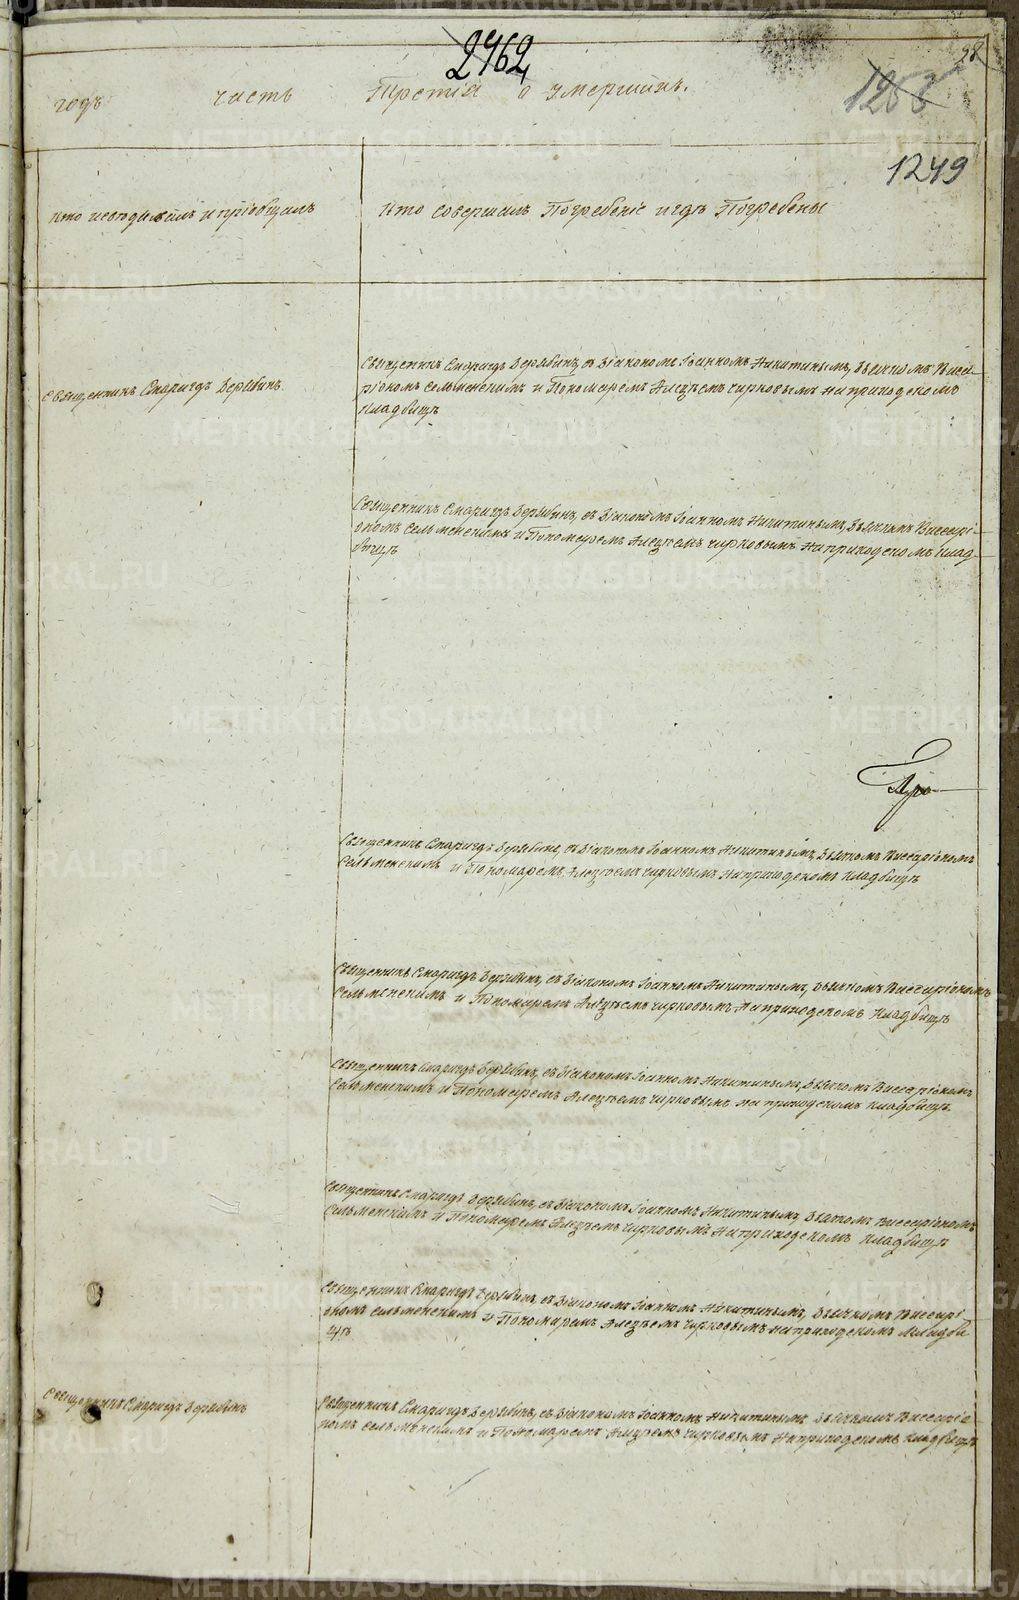 2462
98
годъ часть Третія о умершихъ.
1249
Кто исповѣдывалъ и пріобщалъ
Кто совершалъ Погребеніе и гдѣ Погребены
Священникъ Смарагдъ Дерябинъ, съ Діакономъ Іоанномъ Никитинымъ, Дьячкомъ Висса-
ріономъ Сельменскимъ и Пономаремъ Алексѣемъ Чирковымъ на приходскомъ
кладбищѣ
Священникъ Смарагдъ Дерябинъ
Священникъ Смарагдъ Дерябинъ, съ Діакономъ Іоанномъ Никитинымъ, Дьячкомъ Виссарі-
ономъ Сельменскимъ и Пономаремъ Алексѣемъ Чирковымъ на приходскомъ клад-
бищѣ
Священникъ Смарагдъ Дерябинъ, съ Діакономъ Іоанномъ Никитинымъ, Дьячкомъ Виссаріономъ
Сельменскимъ и Пономаремъ Алексѣемъ Чирковымъ на приходскомъ кладбищѣ
Священникъ Смарагдъ Дерябинъ, съ Діакономъ Іоанномъ Никитинымъ, Дьячкомъ Виссаріономъ
Сельменскимъ и Пономаремъ Алексѣемъ Чирковымъ на приходскомъ кладбищѣ
Священникъ Смарагдъ Дерябинъ, съ Діакономъ Іоанномъ Никитинымъ, Дьячкомъ Виссаріономъ
Сельменскимъ и Пономаремъ Алексѣемъ Чирковымъ на приходскомъ кладбищѣ
Священникъ Смарагдъ Дерябинъ, съ Діакономъ Іоанномъ Никитинымъ, Дьячкомъ Виссаріономъ
Сельменскимъ и Пономаремъ Алексѣемъ Чирковымъ на приходскомъ кладбищѣ
Священникъ Смарагдъ Дерябинъ, съ Діакономъ Іоанномъ Никитинымъ, Дьячкомъ Виссарі
ономъ Сельменскимъ и Пономаремъ Алексѣемъ Чирковымъ на приходскомъ кладби
щѣ
Священникъ Смарагдъ Дерябинъ
Священникъ Смарагдъ Дерябинъ, съ Діакономъ Іоанномъ Никитинымъ Дьячкомъ Виссаріо-
номъ Сельменскимъ и Пономаремъ Алексѣемъ Чирковымъ на приходскомъ кладбищѣ
METRIKI.GASO-URAL.RU